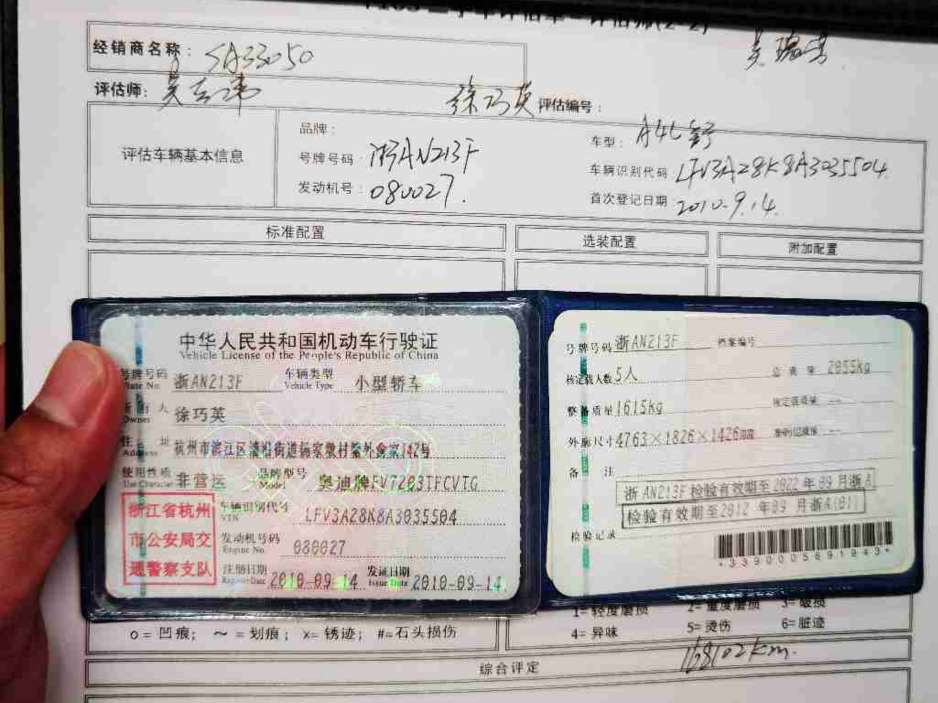 吴瑞芳
经销商名称：SA33050
评估师：
徐巧英 评估编号：
评估车辆基本信息
品牌：
车型：A4L 舒
号牌号码：浙AN213F
车辆识别代码 LFV3A28K8A3035504
发动机号：080027.
首次登记日期 2010.9.14.
标准配置
选装配置
附加配置
中华人民共和国机动车行驶证
Vehicle License of the People's Republic of China
号牌号码 浙AN213F 车辆类型 小型轿车
Plate No. Vehicle Type
所有人 徐巧英
Owner
住址 杭州市滨江区浦沿街道杨家墩村
Address
使用性质 非营运 品牌型号 奥迪牌FV7203TFCVTG
Use Character Model
浙江省杭州
市公安局交
通警察支队
车辆识别代号 LFV3A28K8A3035504
VIN
发动机号码 080027
Engine No.
注册日期 2010-09-14 发证日期 2010-09-14
Register Date Issue Date
号牌号码 浙AN213F 档案编号
核定载人数 5人 总质量 2055kg
整备质量 1615kg 核定载质量 --
外廓尺寸 4763×1826×1426mm --
备注
浙AN213F 检验有效期至2022年09月浙A
检验有效期至2012年09月浙A(01)
检验记录
*3390005691943*
1=轻度磨损 2=重度磨损 3=破损
o=凹痕； ～=划痕； x=锈迹； #=石头损伤
4=异味 5=烫伤 6=脏迹
综合评定
168102km.